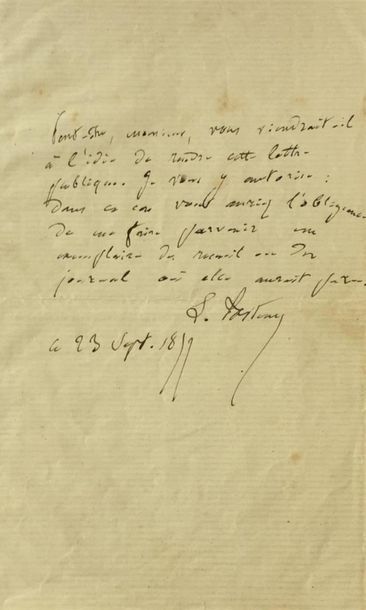 Peut-être, monsieur, vous viendrait-il
à l'idée de rendre cette lettre
publique. Je vous y autorise :
dans ce cas vous auriez l'obligeance
de me faire parvenir un
exemplaire du recueil ou du
journal où elle aurait paru.
L. Pasteur
ce 23 Sept.